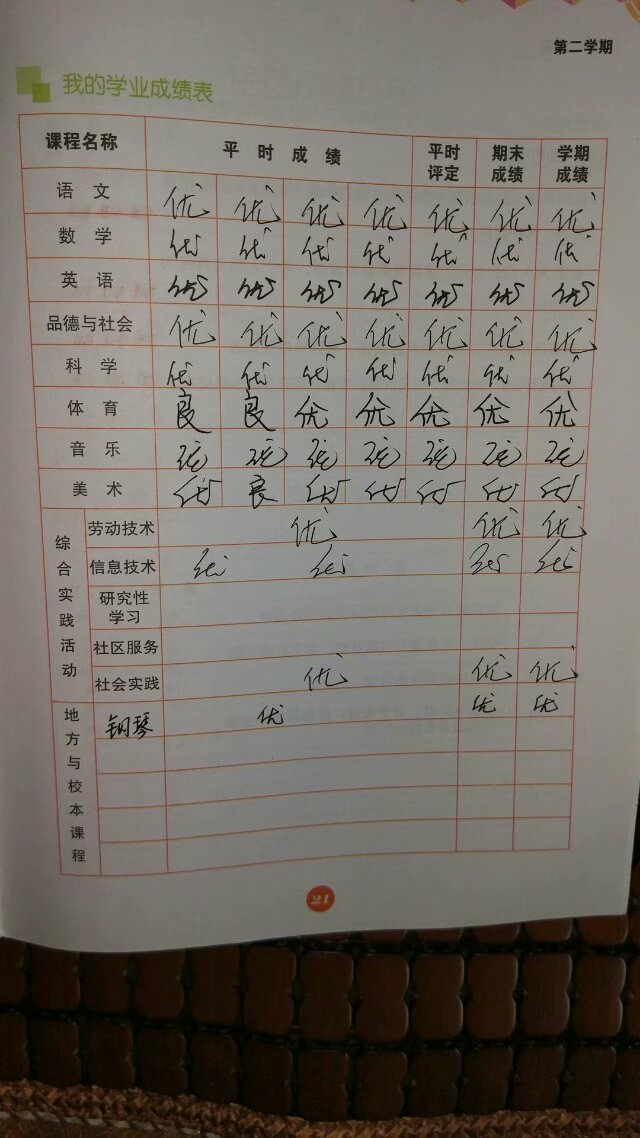 第二学期
我的学业成绩表
课程名称 平时成绩 平时评定 期末成绩 学期成绩
语文 优 优 优 优 优 优 优
数学 优 优 优 优 优 优 优
英语 优 优 优 优 优 优 优
品德与社会 优 优 优 优 优 优 优
科学 优 优 优 优 优 优 优
体育 良 良 优 优 优 优 优
音乐
美术 优 良 优 优 优 优 优
综合实践活动
劳动技术 优 优 优
信息技术
研究性学习
社区服务
社会实践 优 优 优
地方与校本课程
钢琴 优 优 优
21